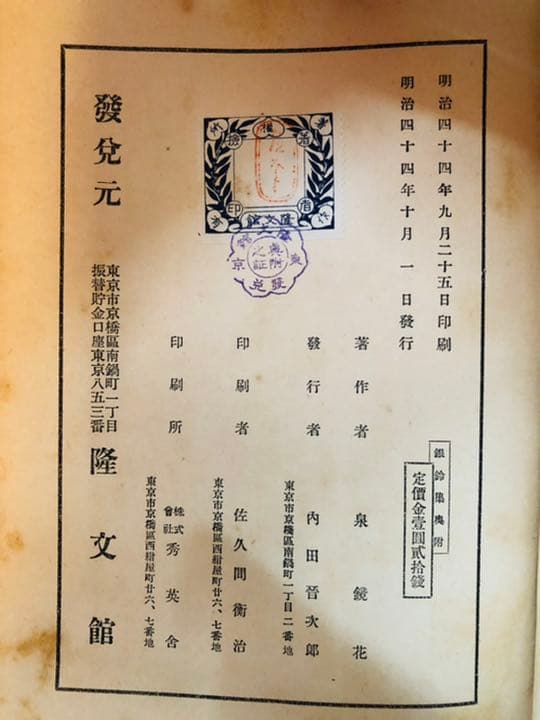 明治四十四年九月二十五日印刷
明治四十四年十月一日發行
銀鈴集奧附
定價金壹圓貳拾錢
著作者 泉鏡花
發行者 內田晉次郎
東京市京橋區南鍋町一丁目二番地
印刷者 佐久間衡治
東京市京橋區西紺屋町廿六、七番地
印刷所 株式會社 秀英舍
東京市京橋區西紺屋町廿六、七番地
發兌元
東京市京橋區南鍋町一丁目
振替貯金口座東京八五三番
隆文館
隆文館
奧附之証